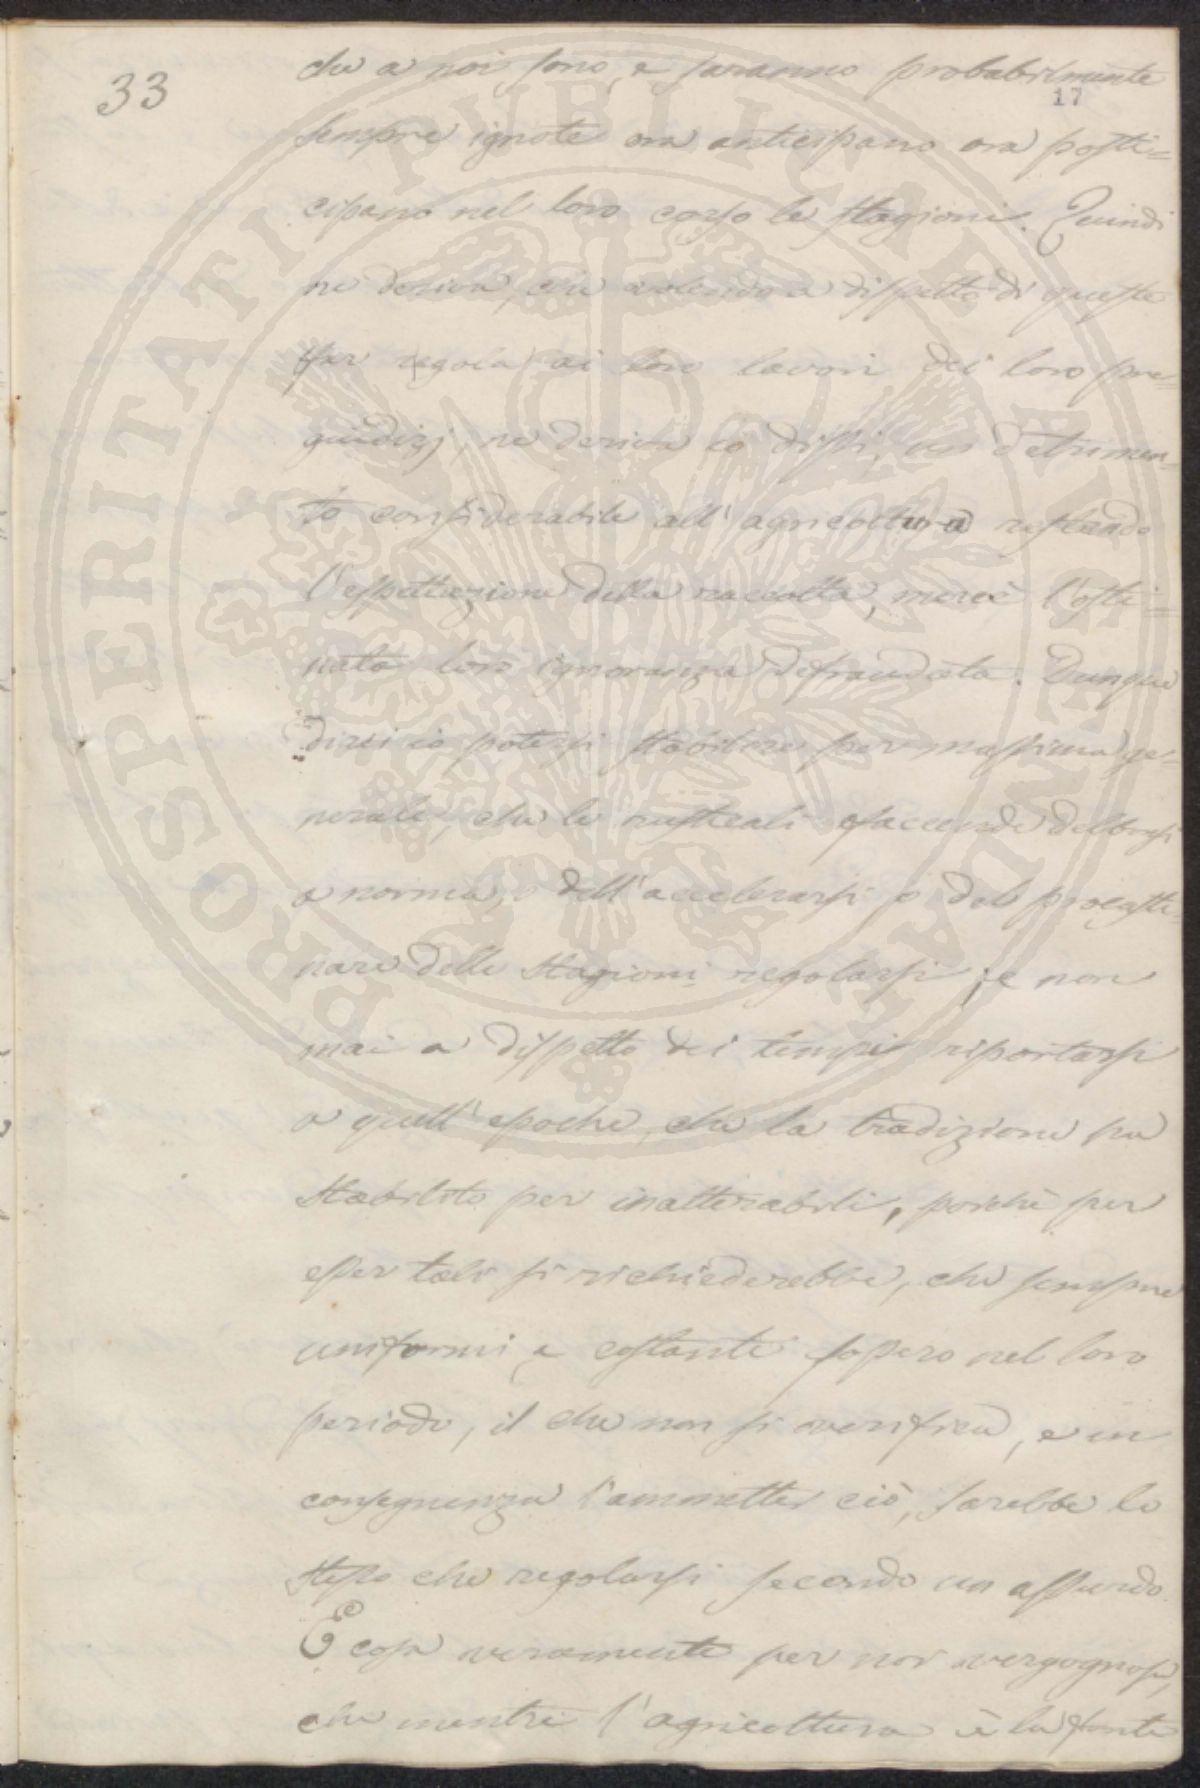 33
che a noi sono, e saranno probabilmente
17
sempre ignote ora anticipano ora posti=
cipano nel loro corso le stagioni. Quindi
ne deriva, che volendo a dispetto di queste
per regola ai loro lavori dei loro pre=
giudizj, ne deriva io dissi, un detrimen=
to considerabile all'agricoltura restando
l'espettazione della raccolta, mercè l'osti=
nata loro ignoranza defraudata. Dunque
direi io potersi stabilire per massima ge=
nerale, che le rusticali faccende debbansi
a norma, o dell'accelerarsi, o del procasti=
nare delle stagioni regolarsi; e non
mai a dispetto dei tempi riportarsi
a quell'epoche, che la tradizione ha
stabilito per inalterabili, poichè per
esser tali si richiederebbe, che sempre
uniformi e costanti fossero nel loro
periodo, il che non si verifica, e in
conseguenza l'ammetter ciò, sarebbe lo
stesso che regolarsi secondo un assurdo.
È cosa veramente per noi vergognosa,
che mentre l'agricoltura è la fonte
PROSPERITATI PUBLICAE AUGENDAE